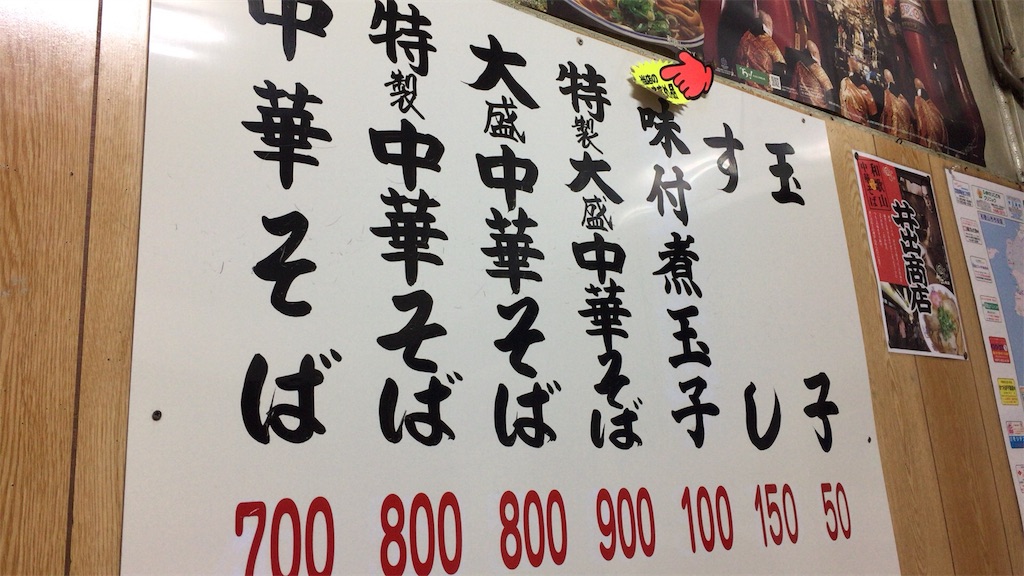 中華そば
700
特製中華そば
800
大盛中華そば
800
特製大盛中華そば
900
味付煮玉子
100
すし
150
玉子
50
井出商店